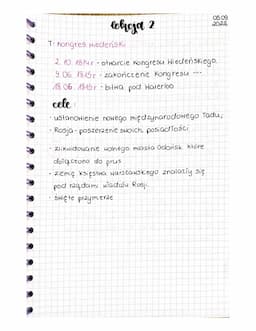 Lekcja 2
T: Kongres wiedeński
2. 10. 1814r - otwarcie Kongresu Wiedeńskiego.
9. 06. 1815r - zakończenie Kongresu
18. 06. 1815r - bitwa pod Waterloo
cele:
- ustanowienie nowego międzynarodowego ładu,
- Rosja - poszerzenie swoich posiadłości
- zlikwidowanie wolnego miasta Gdańsk, które
dołączono do prus
- ziemię księstwa warszawskiego znalazły się
pod rządami władcy Rosji.
- święte przymierze